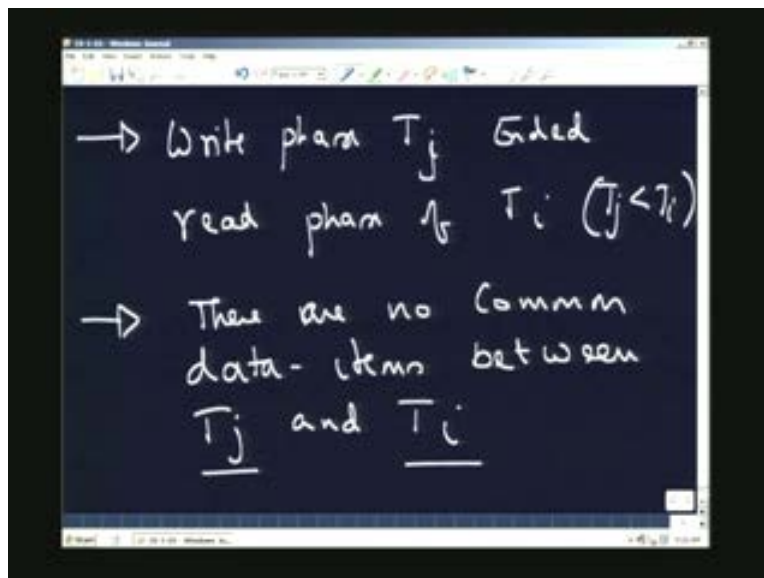 → Write phase Tj Ended
read phase of Ti (Tj < Ti)
→ There are no Common
data-items between
Tj and Ti